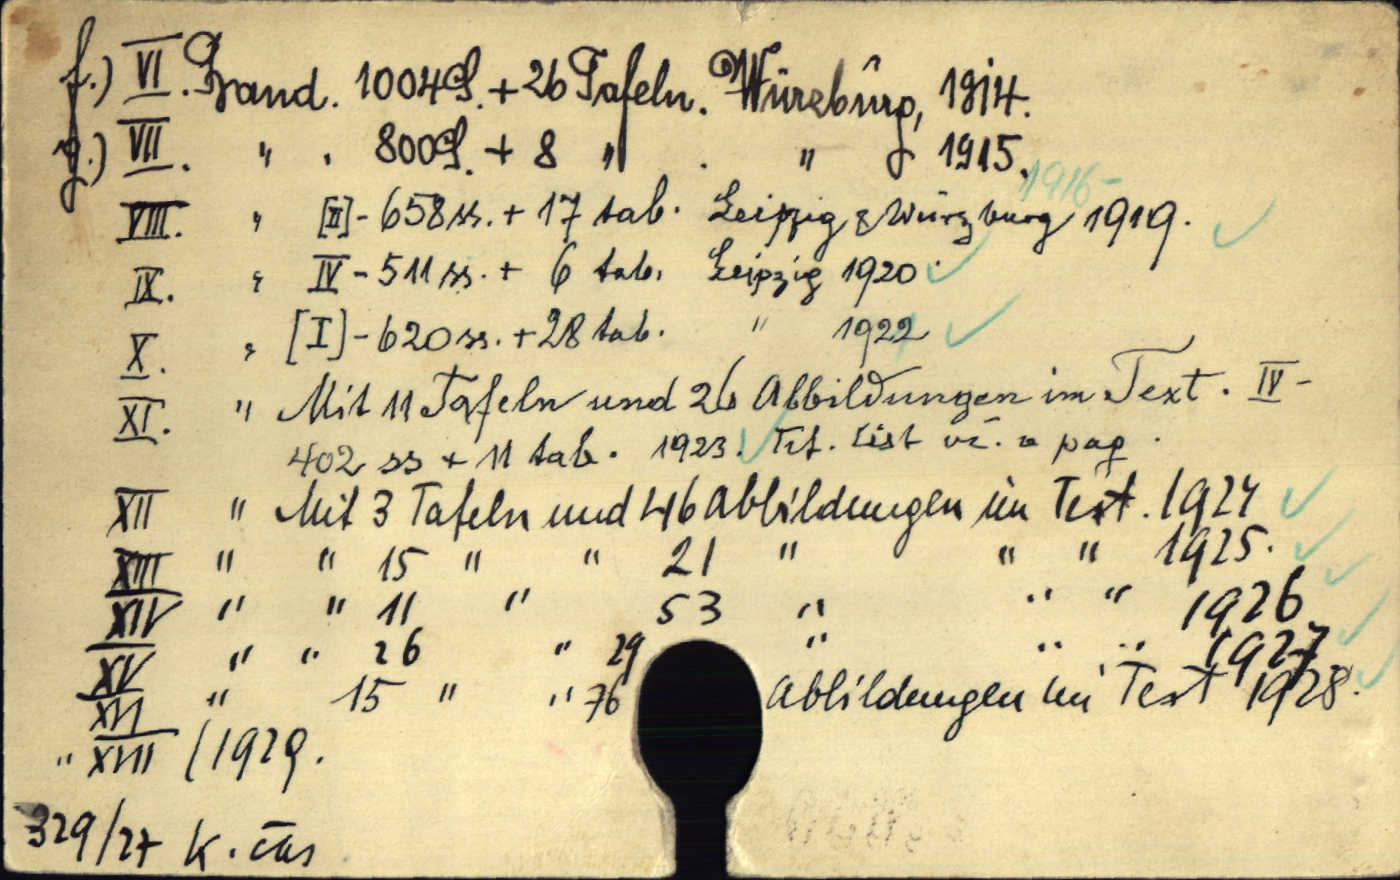 f.) VI. Band. 1004 S. + 26 Tafeln. Würzburg, 1914.
g.) VII. " . 800 S. + 8 " . " 1915.
1916-
VIII. " [II] - 658 ss. + 17 tab. Leipzig & Würzburg 1919.
IX. " IV - 511 ss. + 6 tab. Leipzig 1920.
X. " [I] - 620 ss. + 28 tab. " 1922
XI. " Mit 11 Tafeln und 26 Abbildungen im Text. IV -
402 ss + 11 tab. 1923. Tit. list vč. v pag.
XII " Mit 3 Tafeln und 46 Abbildungen im Text. 1924
XIII " " 15 " " 21 " " " 1925.
XIV " " 11 " 53 " " " 1926
XV " " 26 " 29 " " " 1927
XVI " 15 " " 76 Abbildungen im Text 1928.
" XVII (1929.
329/27 K. čas